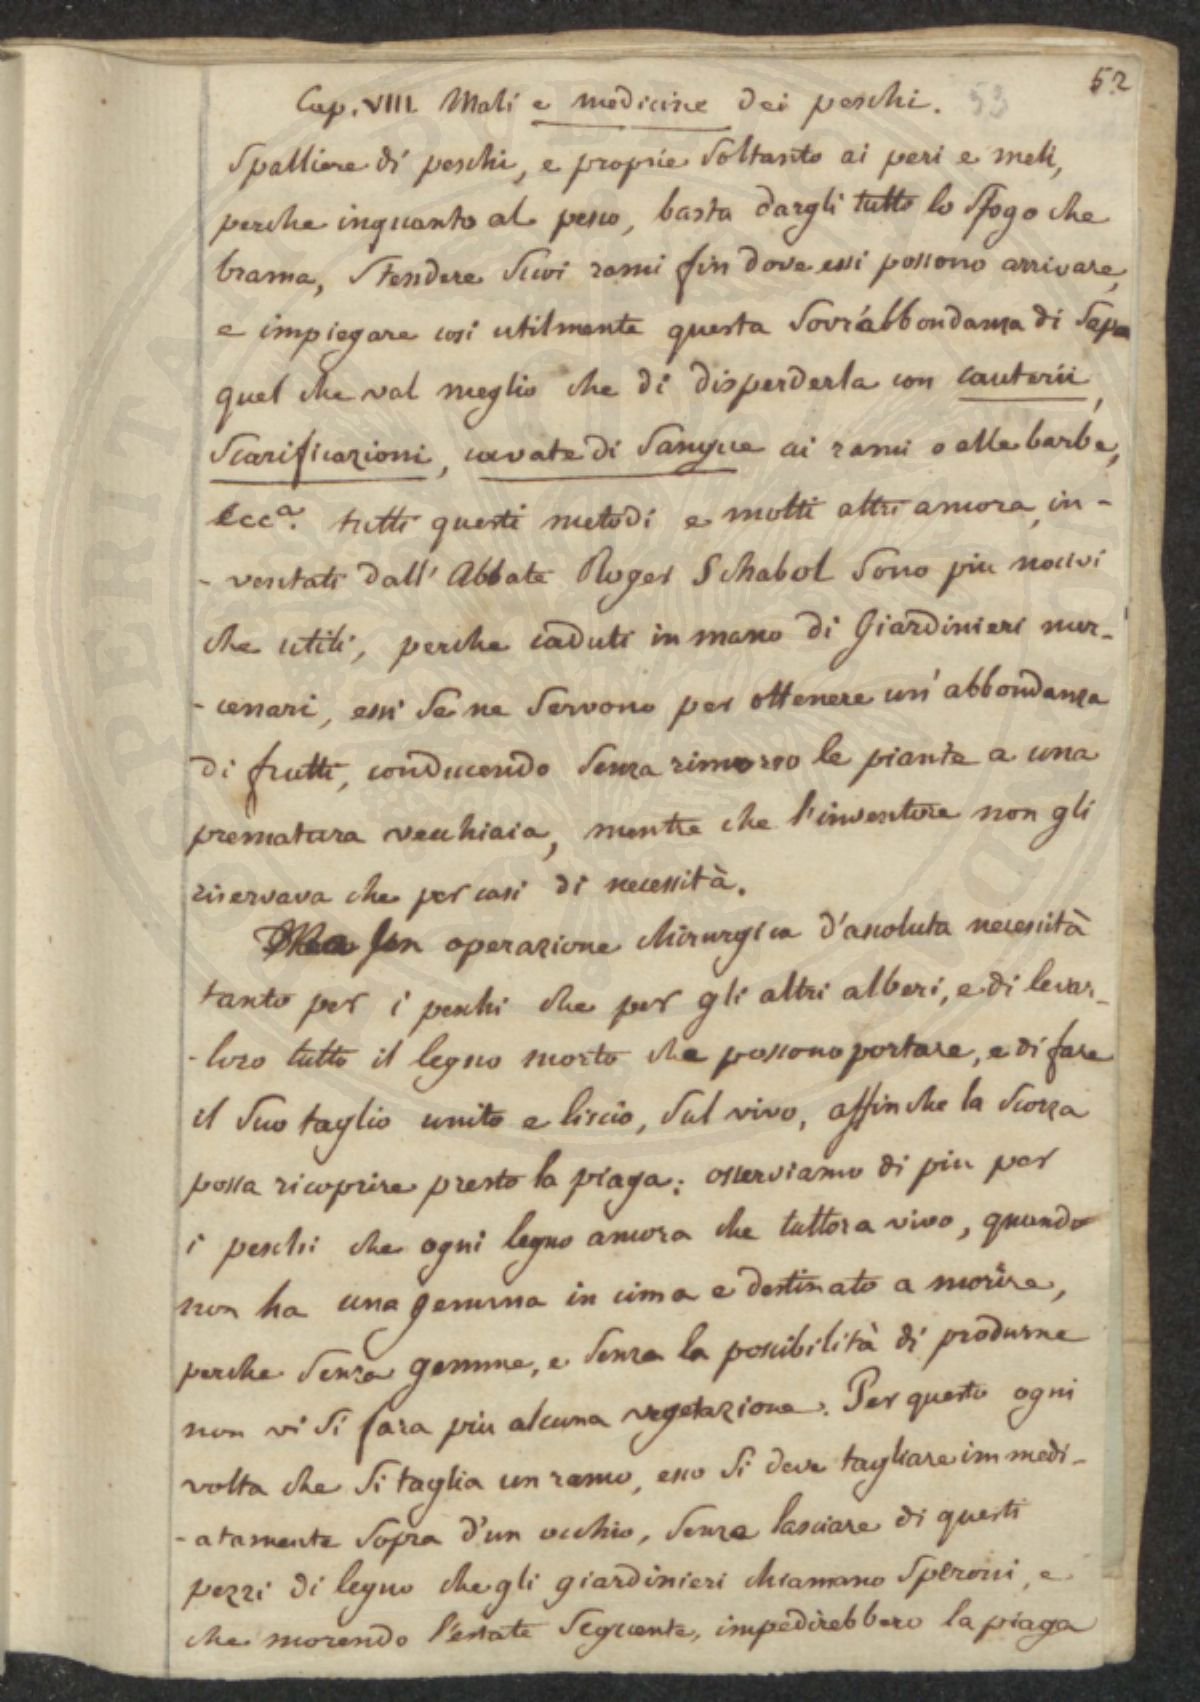 52
Cap. VIII. Mali e medicine dei peschi. 53
Spalliere di peschi, e proprie soltanto ai peri e meli,
perche inquanto al pesco, basta dargli tutto lo sfogo che
brama, stendere suoi rami fin dove essi possono arrivare,
e impiegare cosi utilmente questa sovr'abbondanza di sepa
quel che val meglio che di disperderla con cauterii,
scarificazioni, cavate di sangue ai rami o alle barbe,
Ecca. tutti questi metodi e molti altri ancora, in-
-ventati dall' Abbate Roger Schabol sono piu nocivi
che utili, perche caduti in mano di Giardinieri mer-
-cenari, essi se ne servono per ottenere un' abbondanza
di frutti, conducendo senza rimorso le piante a una
prematura vecchiaia, mentre che l'inventore non gli
riservava che per casi di necessità.
operazione chirurgica d'assoluta necessità
tanto per i peschi che per gli altri alberi, e di levar-
-loro tutto il legno morto che possono portare, e di fare
il suo taglio unito e liscio, sul vivo, affinche la scorza
possa ricoprire presto la piaga; osserviamo di piu per
i peschi che ogni legno ancora che tuttora vivo, quando
non ha una gemma in cima e destinato a morire,
perche senza gemme, e senza la possibilità di produrne
non vi si fara piu alcuna vegetazione. Per questo ogni
volta che si taglia un ramo, esso si deve tagliare immedi-
-atamente sopra d'un occhio, senza lasciare di questi
pezzi di legno che gli giardinieri chiamano speroni, e
che morendo l'estate seguente, impedirebbero la piaga